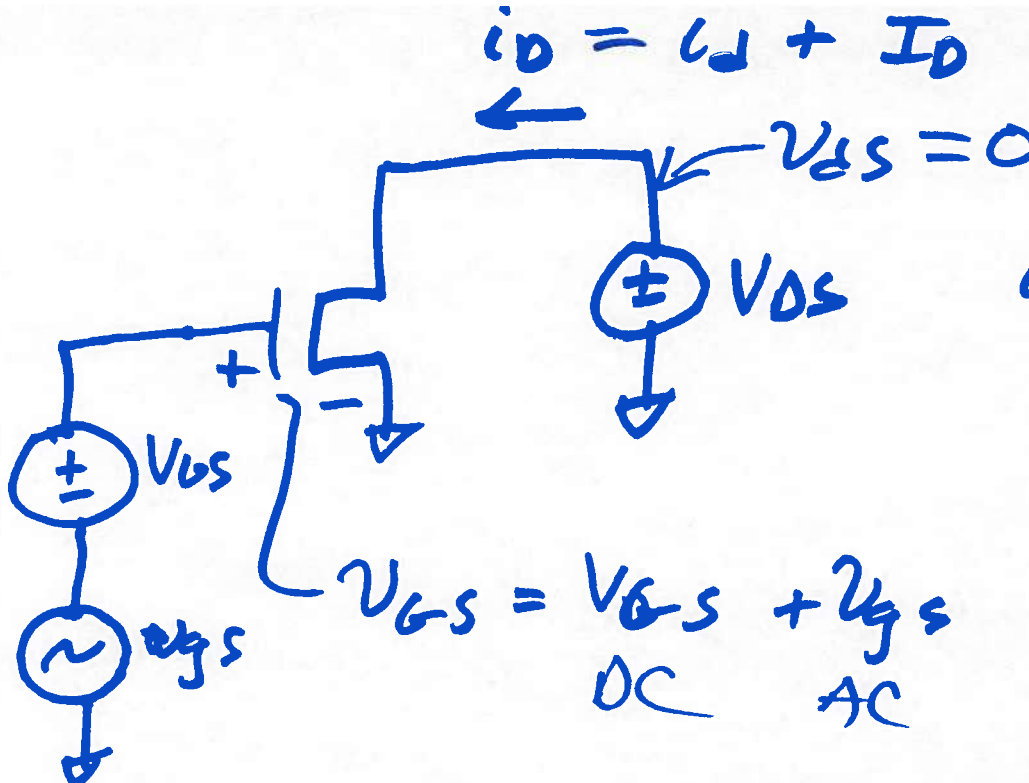 i_D = i_d + I_D
v_ds = 0
± V_DS
+
−
± V_GS
v_GS = V_GS + v_gs
~ v_gs
DC AC